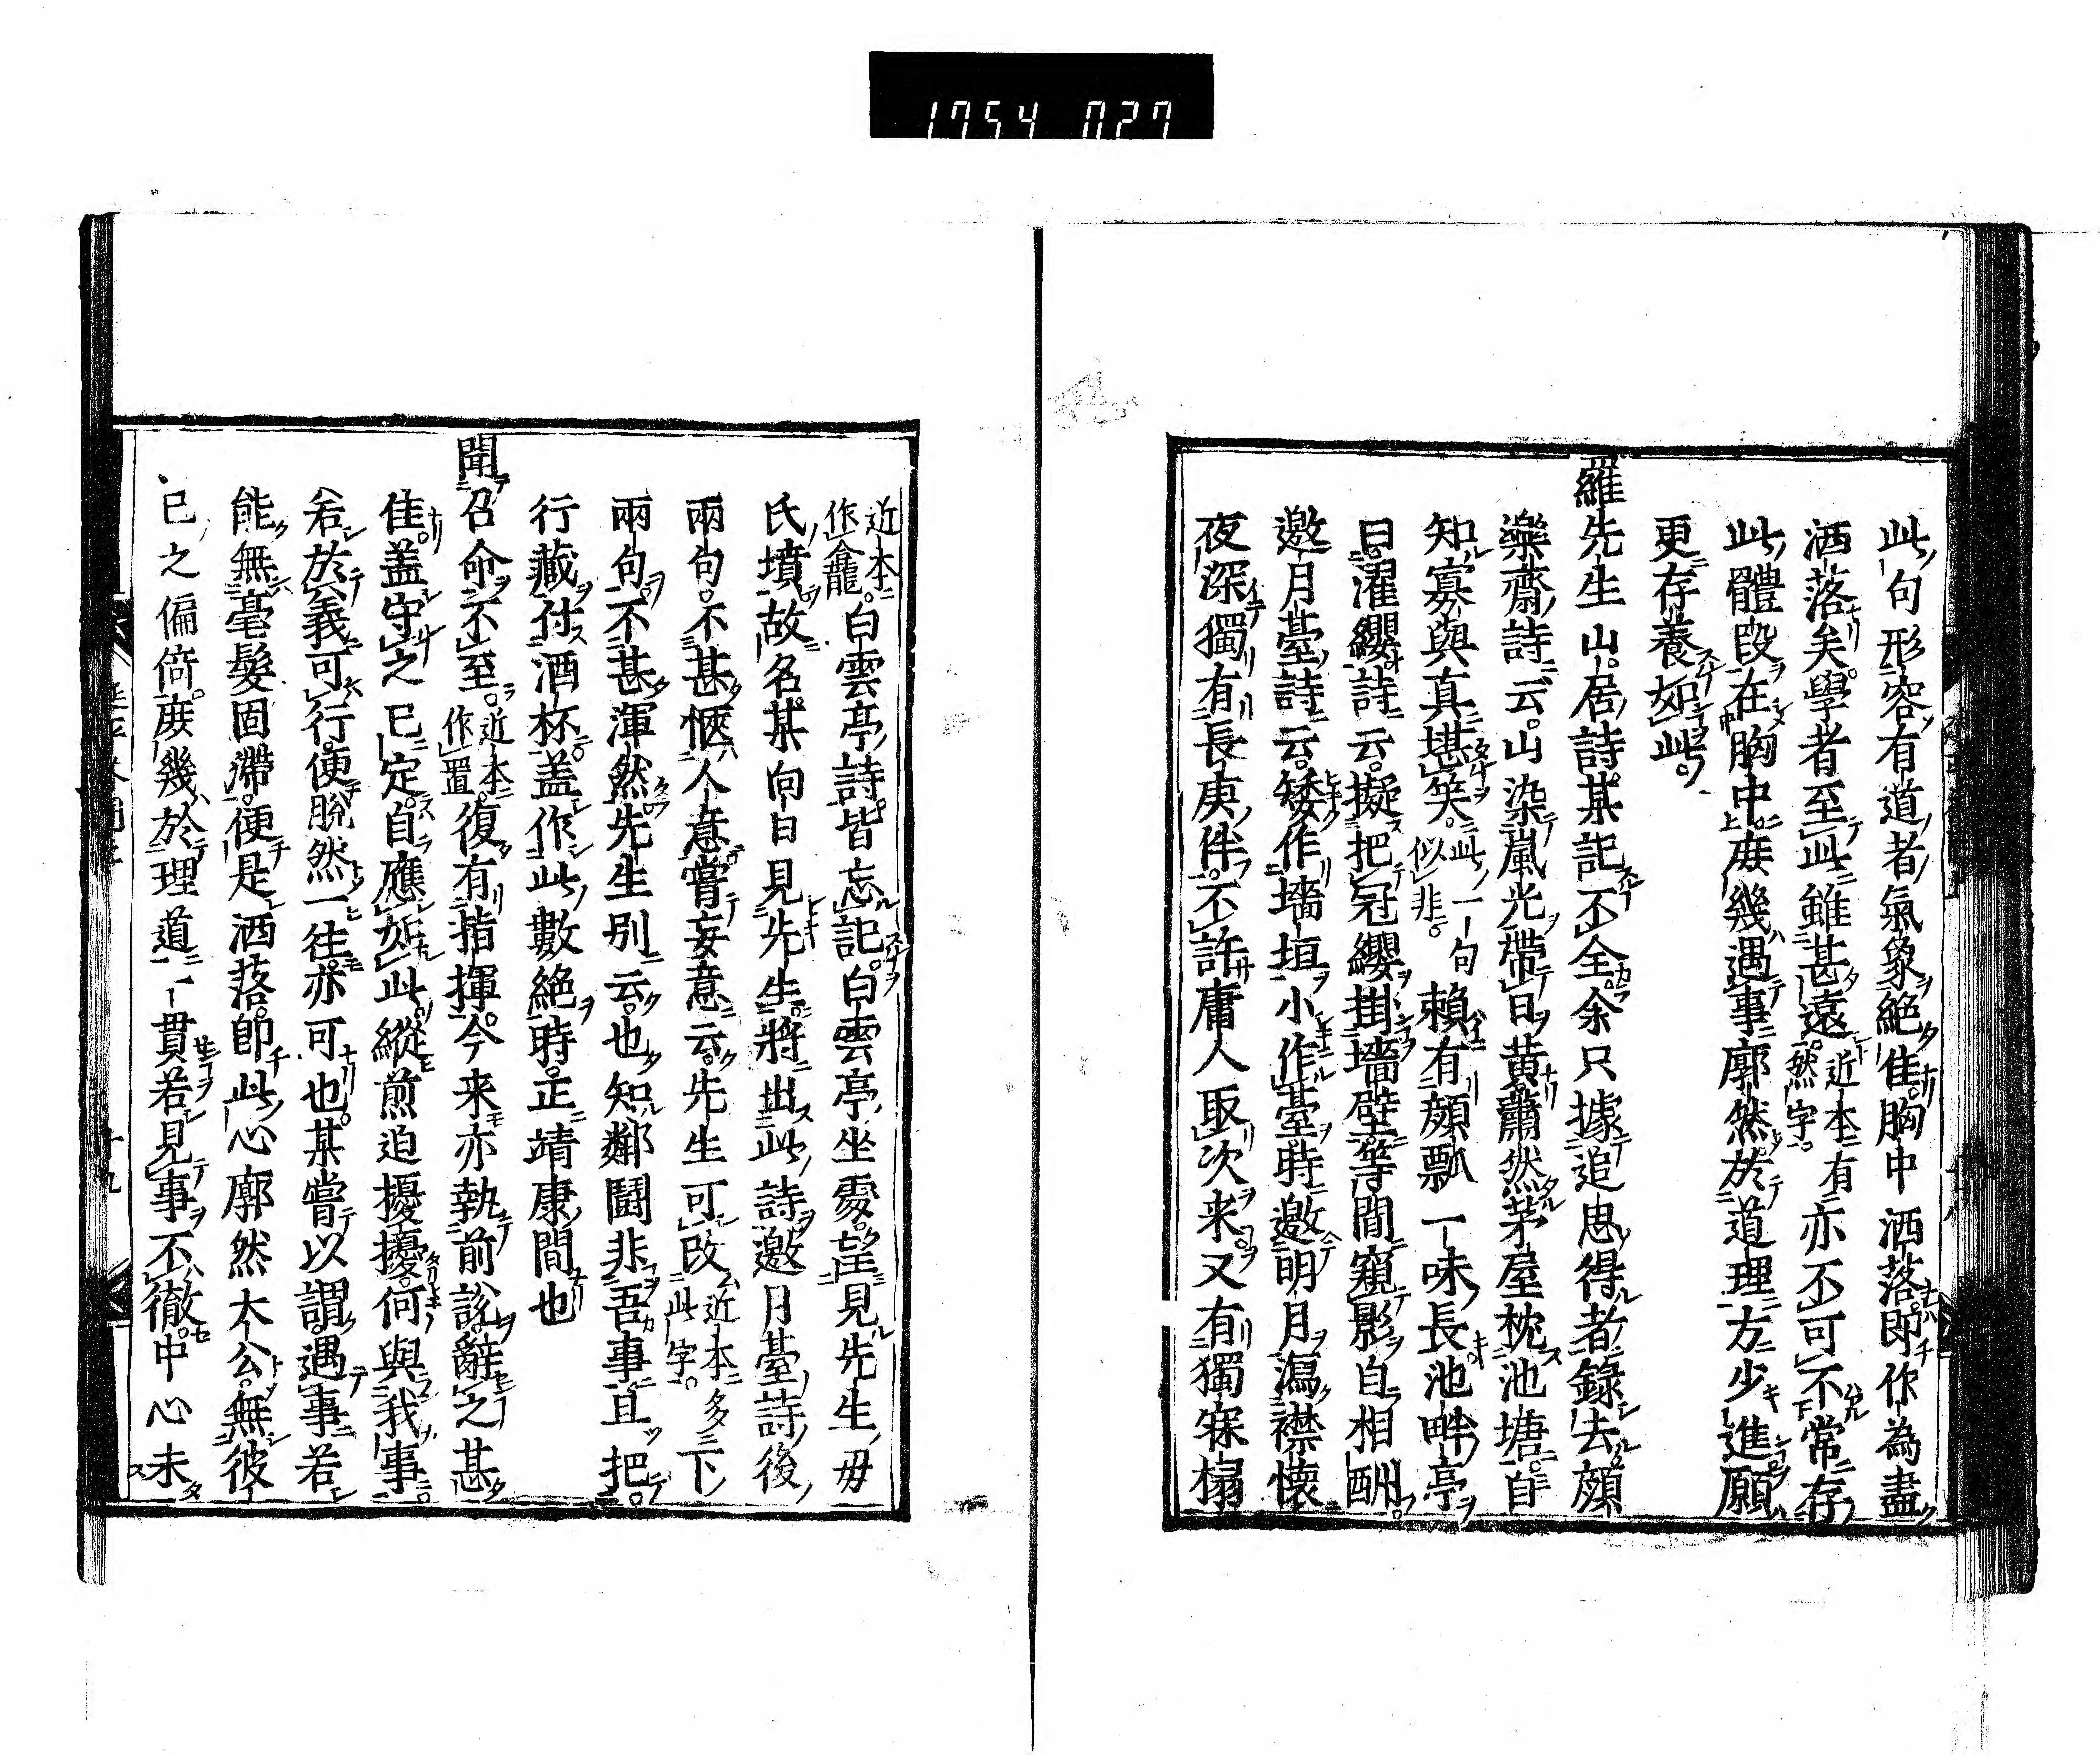 1754 027
此句形容有道者氣象絶佳胸中洒落即作為盡
洒落矣學者至此雖甚遠近本有然字亦不可不常存
此體段在胸中庶幾遇事廓然於道理方少進願
更存養如此
羅先生山居詩某記不全余只據追思得者錄去顔
樂齋詩云山染嵐光帶日黄蕭然茅屋枕池塘自
知寡與真堪笑此一句似非賴有顔瓢一味長池畔亭
曰濯纓詩云擬把冠纓掛墻壁等閒窺影自相酬
邀月臺詩云矮作墻垣小作臺時邀明月瀉襟懐
夜深獨有長庚伴不許庸人取次来又有獨寐榻
近本作龕白雲亭詩皆忘記白雲亭坐處望見先生毋
氏墳故名某向日見先生將出此詩邀月臺詩後
兩句不甚愜人意嘗妄意云先生可改近本多此字下
兩句不甚渾然先生別云也知鄰鬪非吾事且把
行藏付酒杯盖作此數絶時正靖康間也
聞召命不至近本作置復有指揮今来亦執前說辭之甚
佳盖守之已定自應如此縱煎迫擾擾何與我事
若於義可行便脫然一往亦可也某嘗以謂遇事若
能無毫髮固滯便是洒落即此心廓然大公無彼
己之偏倚庶幾於理道一貫若見事不徹中心未